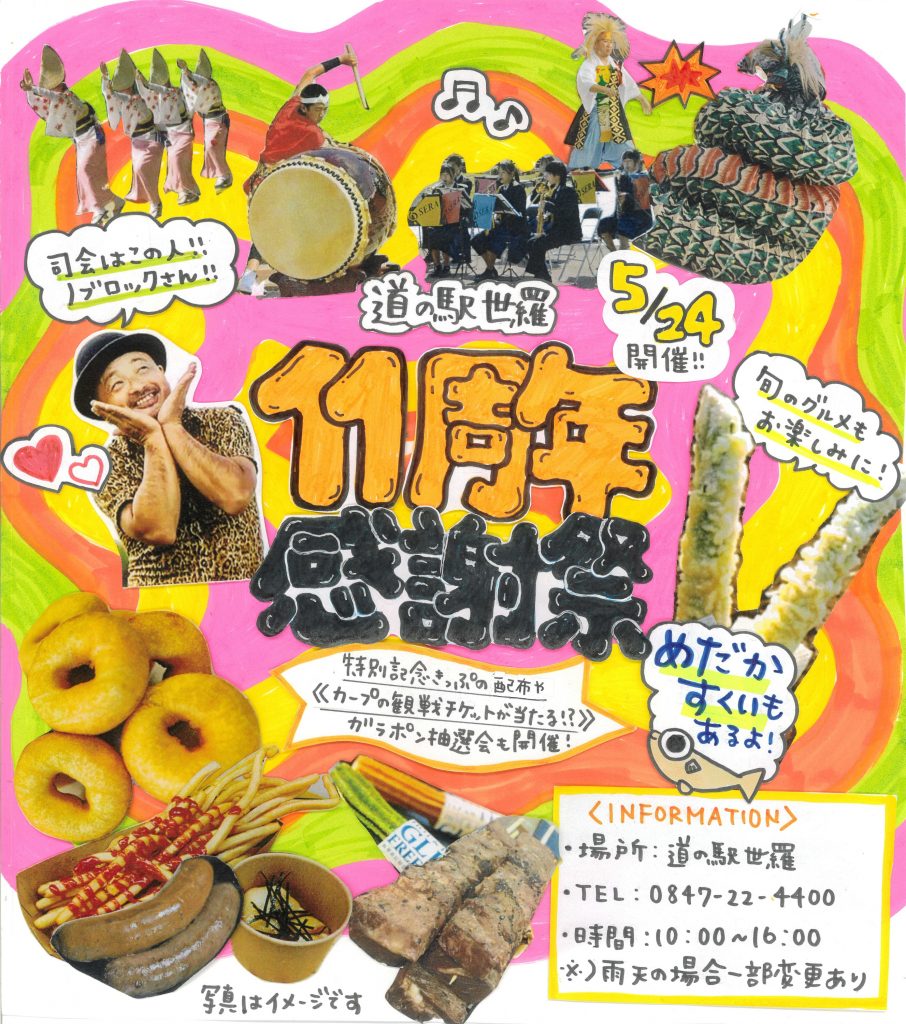 司会はこの人!!
ノブロックさん!!
SERA
SERA
道の駅世羅
5/24
開催!!
11周年
感謝祭
旬のグルメも
お楽しみに!
特別記念きっぷの配布や
《カープの観戦チケットが当たる!?》
ガラポン抽選会も開催!
めだか
すくいも
あるよ!
〈INFORMATION〉
・場所:道の駅世羅
・TEL:0847-22-4400
・時間:10:00~16:00
※)雨天の場合一部変更あり
写真はイメージです